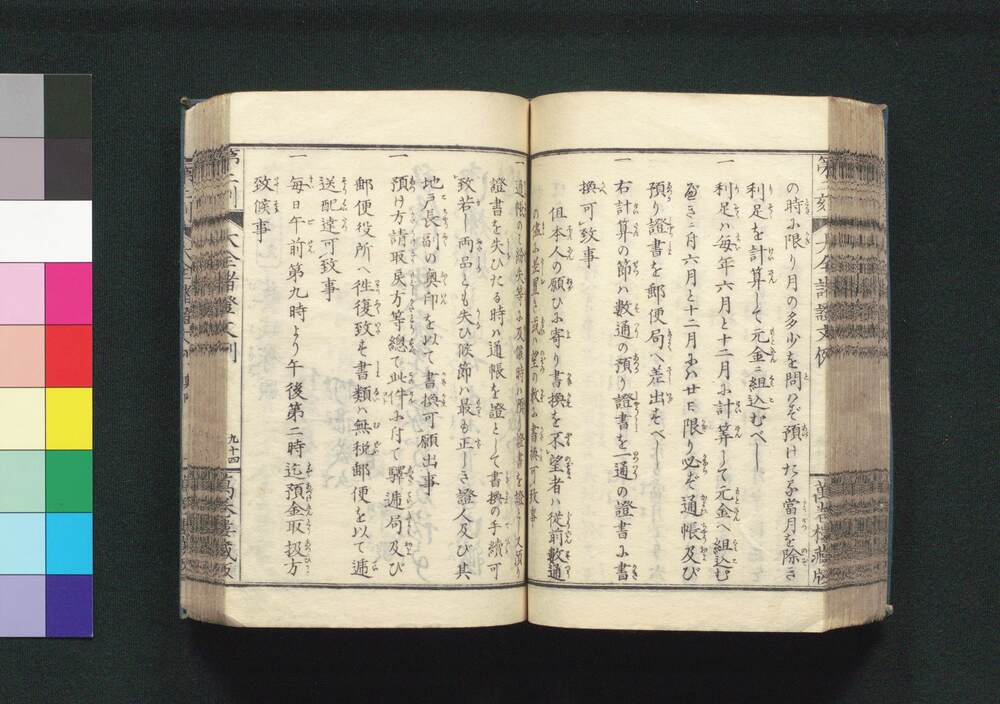 の時に限り月の多少を問はず預けたる當月を除き
利足を計算して元金に組込むべし
一 利足ハ毎年六月と十二月に計算して元金へ組込む
べきに六月と十二月にハ廿日限り必ず通帳及び
預り證書を郵便局へ差出すべし
一 右計算の節ハ數通の預り證書を一通の證書に書
換可致事
但本人の願ひに寄り書換を不望者ハ従前數通
の儘に差置き或ハ望の數に書換可致事
一 通帳のミ紛失等に及候時ハ預り證書を證とし又預り
證書を失ひたる時ハ通帳を證として書換の手續可
致若し両品とも失ひ候節ハ最も正しき證人及び其
地戸長副の奥印を以て書換可願出事
一 預け方請取戻方等總て此件に付て驛逓局及び
郵便役所へ徃復致す書類ハ無税郵便を以て逓
送配達可致事
一 毎日午前第九時より午後第二時迄預金取扱方
致候事
九十四